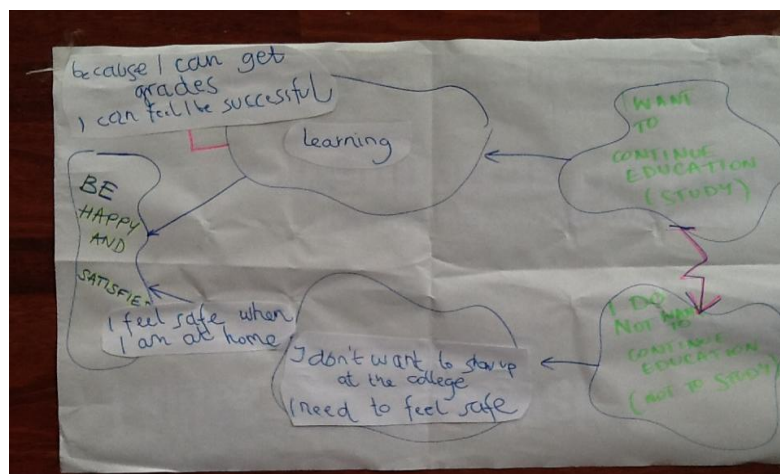 because I can get
grades
I can feel/be successful
learning
I WANT
TO
CONTINUE
EDUCATION
(STUDY)
BE
HAPPY
AND
SATISFIE-
I feel safe when
I am at home
I don't want to show up
at the college
I need to feel safe
I DO
NOT WANT
TO
CONTINUE
EDUCATION
(NOT TO STUDY)